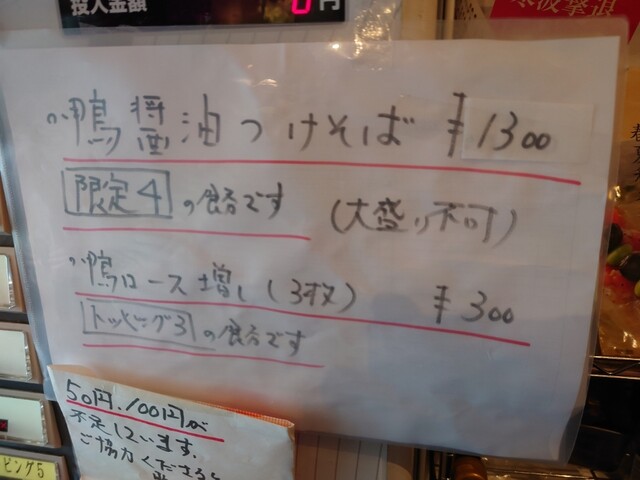 投入金額 0円
寒波撃退
〃鴨醤油つけそば ¥1300
限定4の食券です (大盛り不可)
〃鴨ロース増し(3枚) ¥300
トッピング3の食券です
50円、100円が
不足しています。
ご協力くださると
ピング5